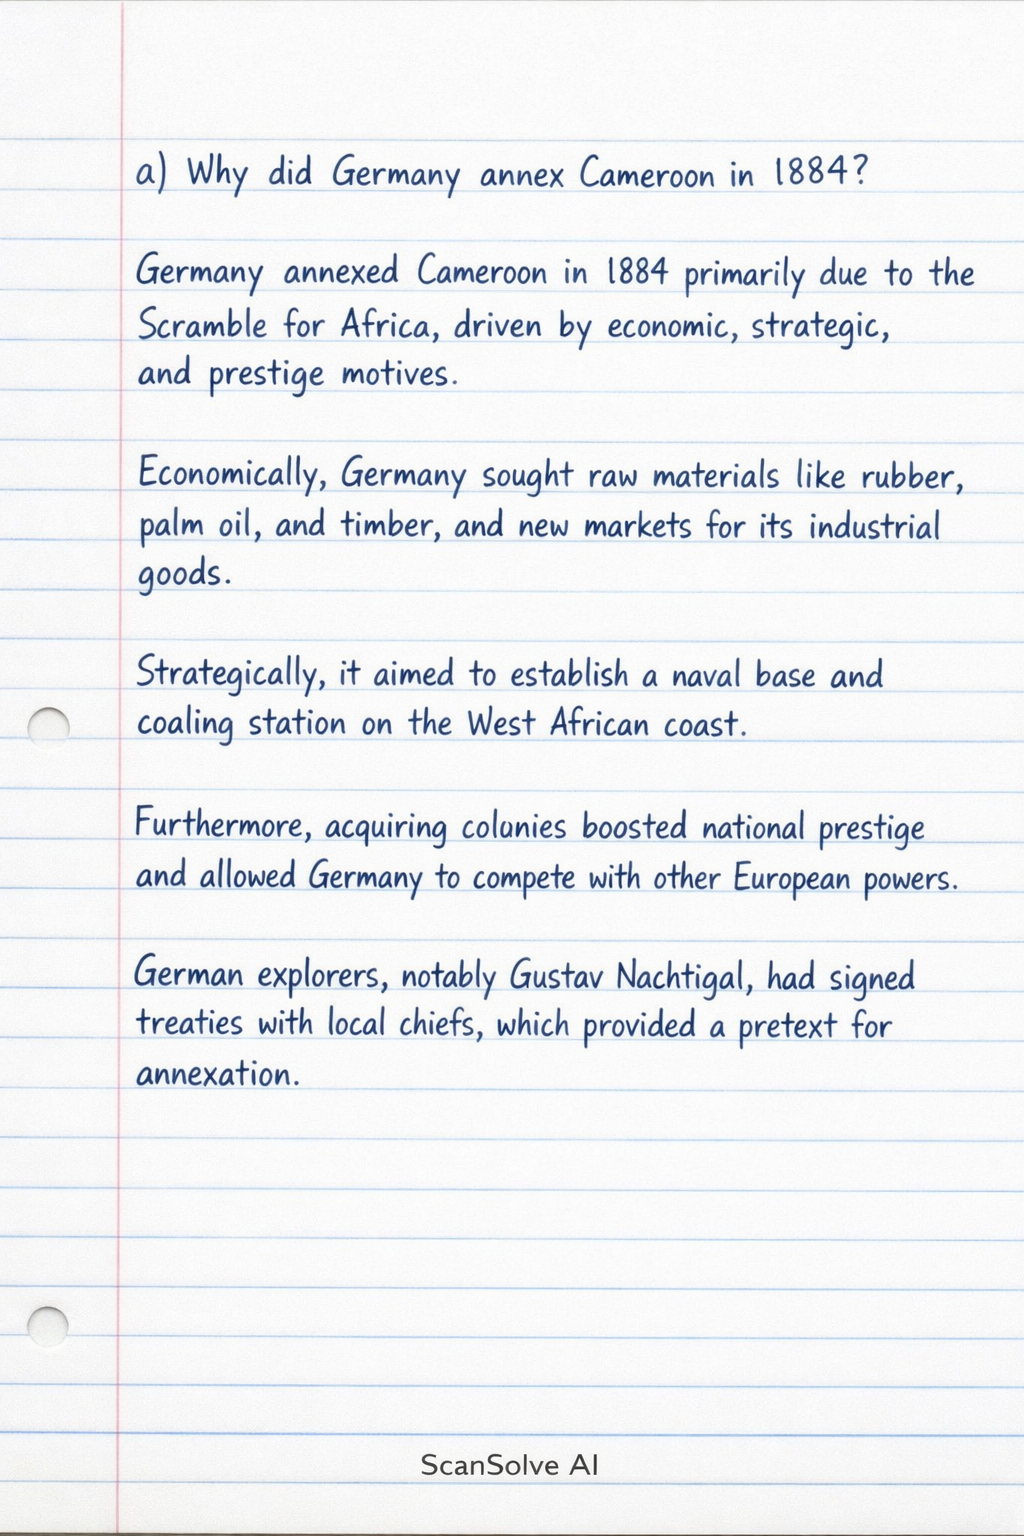 a) Why did Germany annex Cameroon in 1884?
Germany annexed Cameroon in 1884 primarily due to the
Scramble for Africa, driven by economic, strategic,
and prestige motives.
Economically, Germany sought raw materials like rubber,
palm oil, and timber, and new markets for its industrial
goods.
Strategically, it aimed to establish a naval base and
coaling station on the West African coast.
Furthermore, acquiring colonies boosted national prestige
and allowed Germany to compete with other European powers.
German explorers, notably Gustav Nachtigal, had signed
treaties with local chiefs, which provided a pretext for
annexation.
ScanSolve AI